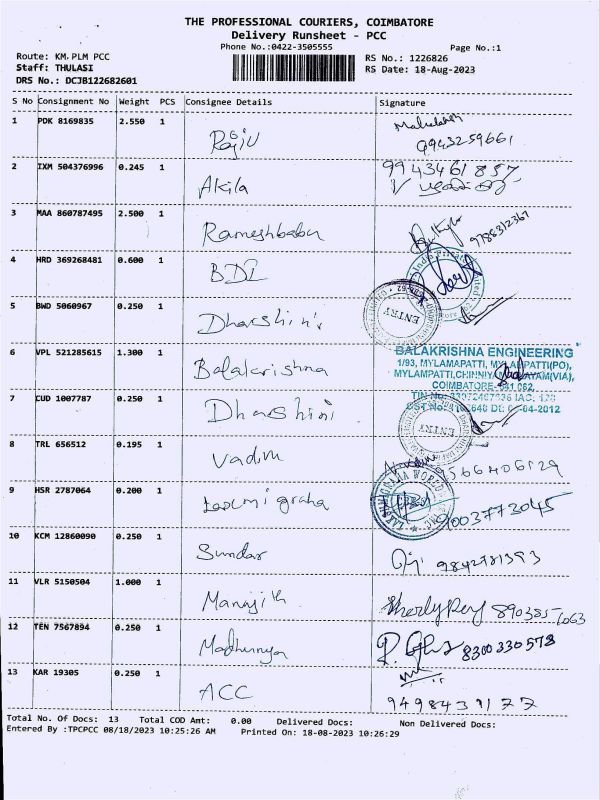 THE PROFESSIONAL COURIERS, COIMBATORE
Delivery Runsheet - PCC
Phone No.:0422-3505555 Page No.:1
Route: KM PLM PCC RS No.: 1226826
Staff: THULASI RS Date: 18-Aug-2023
DRS No.: DCJB122682601
S No Consignment No Weight PCS Consignee Details Signature
1 PDK 8169835 2.550 1 Rajiv
9943259661
2 IXM 504376996 0.245 1 Akila 9943461857
3 MAA 860787495 2.500 1 Rameshbabu 9786312367
4 HRD 369268481 0.600 1 BDI
ENTRY
5 BWD 5060967 0.250 1 Dharshini
6 VPL 521285615 1.300 1 Balakrishna BALAKRISHNA ENGINEERING
1/93, MYLAMAPATTI, MYLAMPATTI(PO),
MYLAMPATTI, CHINNIYAMPALAYAM(VIA),
COIMBATORE-641 062.
7 CUD 1007787 0.250 1 Dharshini ENTRY
8 TRL 656512 0.195 1 Vadim 9566406129
9 HSR 2787064 0.200 1 Laxmi graha 9003773045
10 KCM 12860090 0.250 1 Sundar 9842781393
11 VLR 5150504 1.000 1 Manjith
12 TEN 7567894 0.250 1 8300330578
13 KAR 19305 0.250 1 ACC 9498439177
Total No. Of Docs: 13 Total COD Amt: 0.00 Delivered Docs: Non Delivered Docs:
Entered By :TPCPCC 08/18/2023 10:25:26 AM Printed On: 18-08-2023 10:26:29